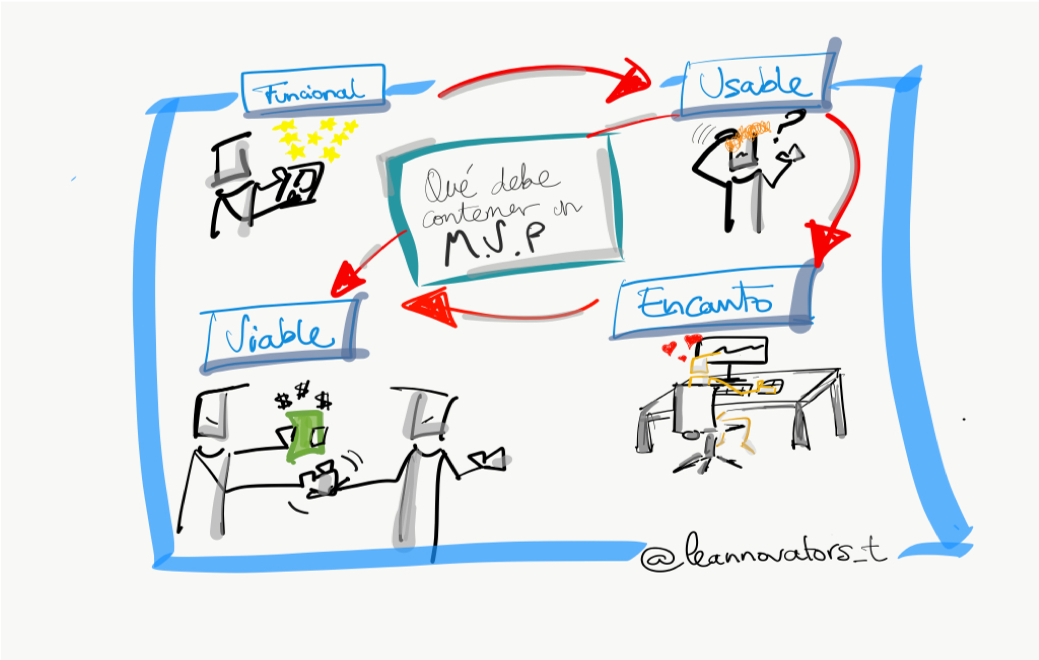 Funcional
Usable
?
Qué debe
contener un
M.V.P
Encanto
Viable
$ $ $
@leannovators_t